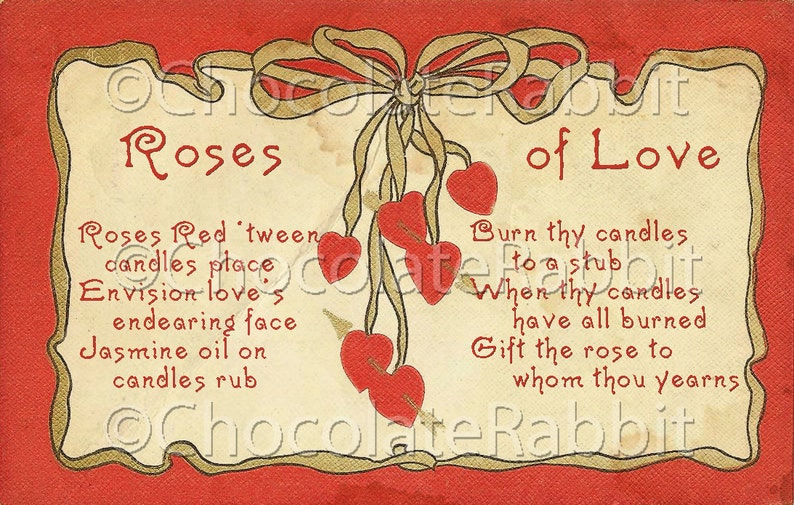 ©ChocolateRabbit
Roses of Love
Roses Red 'tween
candles place
Envision love's
endearing face
Jasmine oil on
candles rub
Burn thy candles
to a stub
When thy candles
have all burned
Gift the rose to
whom thou yearns
©ChocolateRabbit
©ChocolateRabbit